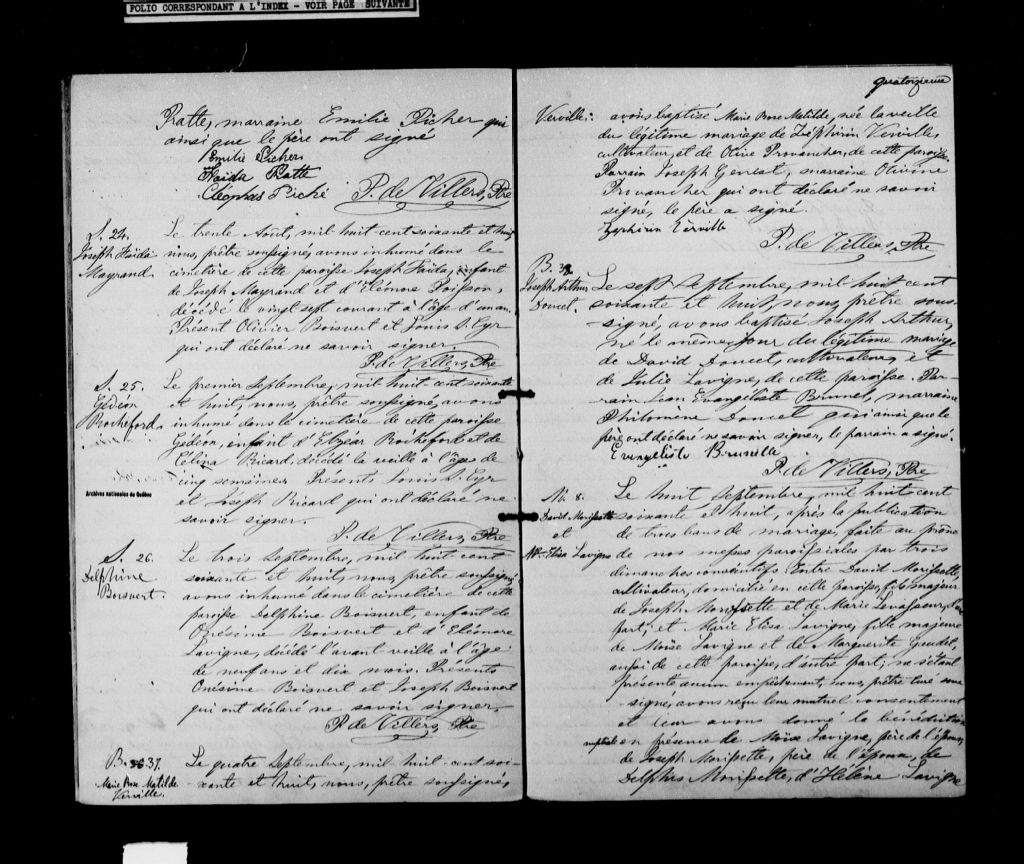 FOLIO CORRESPONDANT A L'INDEX - VOIR PAGE SUIVANTE
Ratte, marraine Emilie Picher qui
ainsi que le père ont signé
Emilie Picher
Haida Ratte
Cléophas Piché P. de Villers, Ptre
S. 24.
Joseph Haida
Mayrand.
Le trente Août, mil huit cent soixante et huit
nous, prêtre soussigné, avons inhumé dans le
cimetière de cette paroisse Joseph Haida, enfant
de Joseph Mayrand et d'Elénore Poisson,
décédé le vingt sept courant à l'âge d'un an.
Présent Olivier Boisvert et Louis St. Cyr
qui ont déclaré ne savoir signer.
P. de Villers, Ptre
S. 25.
Gédéon
Rocheford.
Le premier Septembre, mil huit cent soixante
et huit, nous, prêtre soussigné, avons
inhumé dans le cimetière de cette paroisse
Gédéon, enfant d'Elzéar Rocheford et de
Célina Ricard, décédé la veille à l'âge de
cinq semaines. Présents Louis St. Cyr
et Joseph Ricard qui ont déclaré ne
savoir signer.
P. de Villers, Ptre
Archives nationales du Québec
S. 26.
Delphine
Boisvert.
Le trois Septembre, mil huit cent
soixante et huit, nous, prêtre soussigné,
avons inhumé dans le cimetière de cette
paroisse Delphine Boisvert, enfant de
Onésime Boisvert et d'Eléonore
Lavigne, décédé l'avant veille à l'âge
de neuf ans et dix mois. Présents
Onésime Boisvert et Joseph Boisvert
qui ont déclaré ne savoir signer.
P. de Villers, Ptre
B. 37.
Marie Rose Matilde
Verville.
Le quatre Septembre, mil huit cent soi-
xante et huit, nous, prêtre soussigné,
quatorzième
Verville. avons baptisé Marie Rose Matilde, née la veille
du légitime mariage de Zéphirin Verville,
cultivateur, et de Olive Provancher, de cette paroisse.
Parrain Joseph marraine Olivine
Provancher qui ont déclaré ne savoir
signé, le père a signé.
Zephirin Verville
P. de Villers, Ptre
B. 38.
Joseph Arthur
Doucet.
Le sept Septembre, mil huit cent
soixante et huit, nous, prêtre sous-
-signé, avons baptisé Joseph Arthur,
né le même jour du légitime mariage
de David Doucet, cultivateur, et
de Julie Lavigne, de cette paroisse. Par-
rain Jean Evangéliste Brunel, marraine
Philomène Doucet qui ainsi que le
père ont déclaré ne savoir signer, le parrain a signé.
Evangeliste Brunelle
P. de Villers, Ptre
M. 8.
David Morissette
et
Mie Elisa Lavigne
Le huit Septembre, mil huit cent
soixante et huit, après la publication
de trois bans de mariage, faite au prône
de nos messes paroissiales par trois
dimanches consécutifs Entre David Morissette,
cultivateur, domicilié en cette paroisse, fils majeur
de Joseph Morissette et de Marie Levasseur, d'une
part; et Marie Elisa Lavigne, fille majeure
de Moïse Lavigne et de Marguerite Gaudet,
aussi de cette paroisse, d'autre part; ne s'étant
présenté aucun empêchement, nous, prêtre curé sous-
signé, avons reçu leur mutuel consentement
et leur avons donné la bénédiction
nuptiale en présence de Moïse Lavigne, père de l'épouse,
de Joseph Morissette, père de l'époux, de
Delphis Morissette, d'Hélène Lavigne